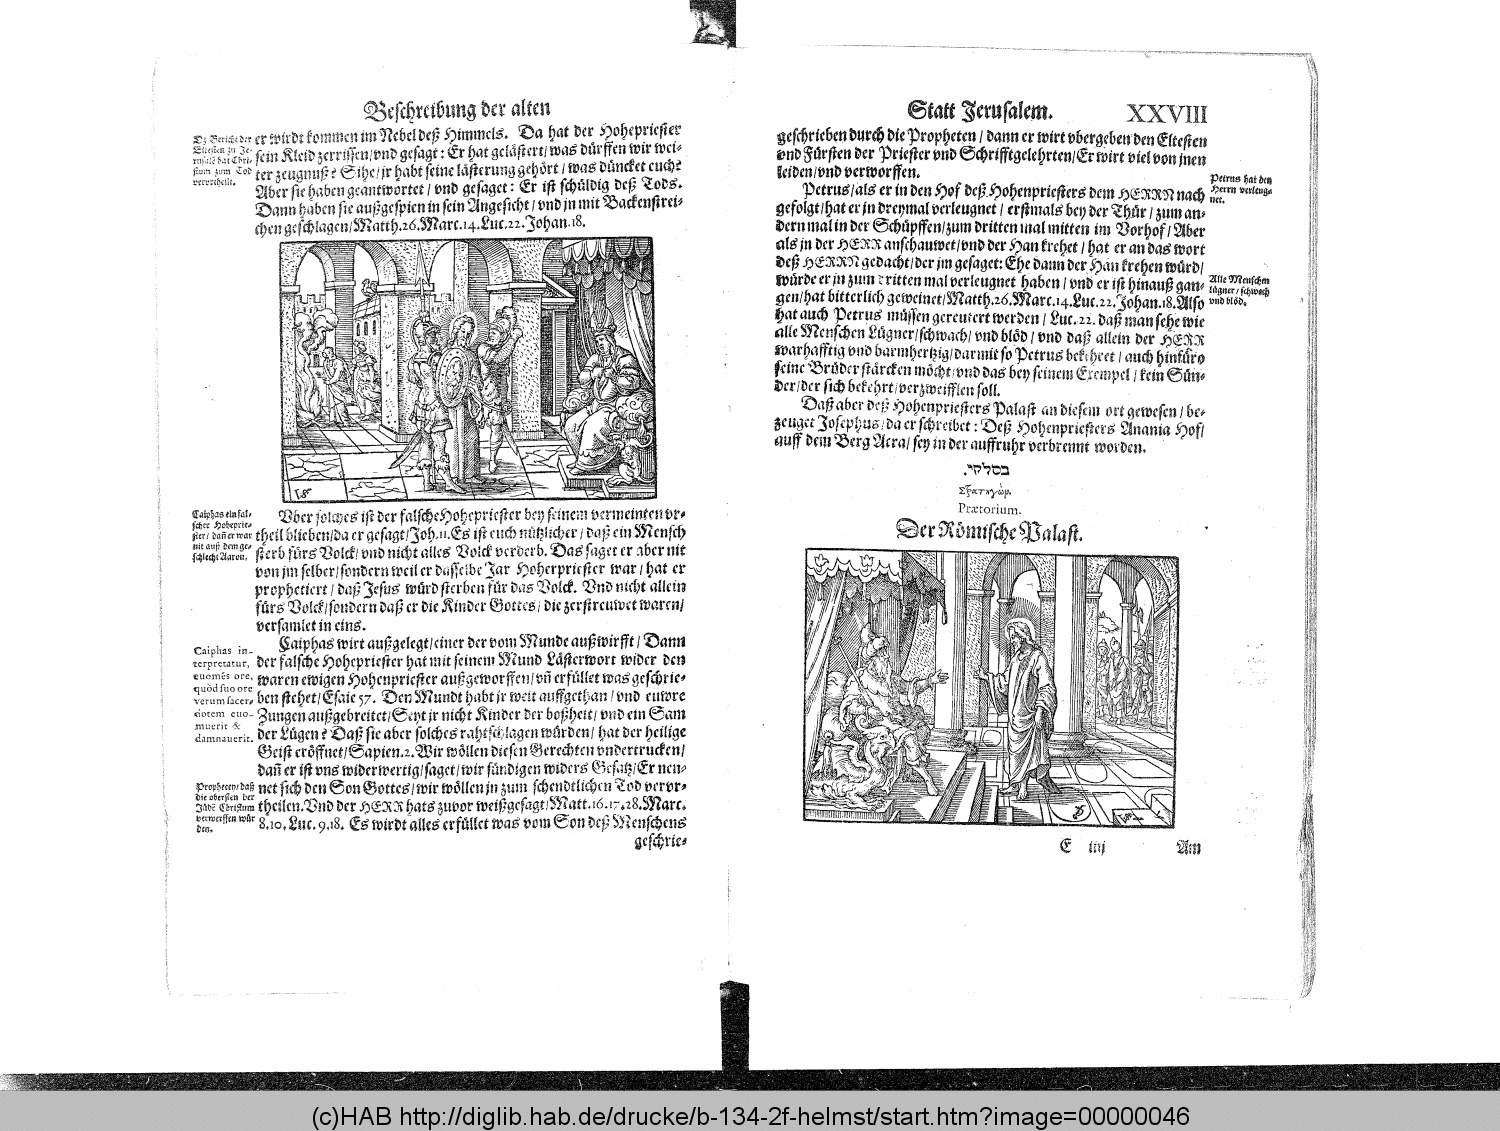 Beschreibung der alten
Dz Bericht der
Eltesten zu Je-
rusalē hat Chri-
stum zum Tod
verurtheilt.
er wirdt kommen im Nebel deß Himmels. Da hat der Hohepriester
sein Kleid zerrissen/vnd gesagt: Er hat gelästert/was dürffen wir wei-
ter zeugnuß? Sihe/jr habt seine lästerung gehört/was düncket euch?
Aber sie haben geantwortet/vnd gesaget: Er ist schüldig deß Tods.
Dann haben sie außgespien in sein Angesicht/vnd jn mit Backenstrei-
chen geschlagen/Matth.26.Marc.14.Luc.22.Johan.18.
Caiphas ein fal-
scher Hoheprie-
ster/dañ er war
nit auß dem ge-
schlecht Aaron.
Vber solches ist der falsche Hohepriester bey seinem vermeinten vr-
theil blieben/da er gesagt/Joh.11.Es ist euch nützlicher/daß ein Mensch
sterb fürs Volck/vnd nicht alles Volck verderb. Das saget er aber nit
von jm selber/sondern weil er dasselbe Jar Hoherpriester war/hat er
prophetiert/daß Jesus würd sterben für das Volck. Vnd nicht allein
fürs Volck/sondern daß er die Kinder Gottes/die zerstreuwet waren/
versamlet in eins.
Caiphas in-
terpretatur,
euomēs ore,
quòd suo ore
verum sacer-
dotem euo-
muerit &
damnauerit.
Caiphas wirt außgelegt/einer der vom Munde außwirfft/Dann
der falsche Hohepriester hat mit seinem Mund Lästerwort wider den
waren ewigen Hohenpriester außgeworffen/vñ erfüllet was geschrie-
ben stehet/Esaie 57. Den Mundt habt jr weit auffgethan/vnd euwre
Zungen außgebreitet/Seyt jr nicht Kinder der boßheit/vnd ein Sam
der Lügen? Daß sie aber solches rahtschlagen würden/hat der heilige
Geist eröffnet/Sapien.2.Wir wöllen diesen Gerechten vndertrucken/
dañ er ist vns widerwertig/saget/wir sündigen widers Gesatz/Er nen-
net sich den Son Gottes/wir wöllen jn zum schendtlichen Tod vervr-
theilen.Vnd der HERR hats zuvor weißgesagt/Matt.16.17.28.Marc.
8.10.Luc.9.18. Es wirdt alles erfüllet was vom Son deß Menschens
Propheten/daß
die obersten der
Jüdē Christum
verwerffen wür
den.
geschrie-
Statt Jerusalem.
XXVIII
geschrieben durch die Propheten/dann er wirt vbergeben den Eltesten
vnd Fürsten der Priester vnd Schrifftgelehrten/Er wirt viel von jnen
leiden/vnd verworffen.
Petrus/als er in den Hof deß Hohenpriesters dem HERRN nach
gefolgt/hat er jn dreymal verleugnet/erstmals bey der Thür/zum an-
dern mal in der Schüpffen/zum dritten mal mitten im Vorhof/Aber
als jn der HERR anschauwet/vnd der Han krehet/hat er an das wort
deß HERRN gedacht/der jm gesaget: Ehe dann der Han krehen würd/
würde er jn zum dritten mal verleugnet haben/vnd er ist hinauß gan-
gen/hat bitterlich geweinet/Matth.26.Marc.14.Luc.22.Johan.18.Also
hat auch Petrus müssen gereutert werden/Luc.22. daß man sehe wie
alle Menschen Lügner/schwach/vnd blöd/vnd daß allein der HERR
warhafftig vnd barmhertzig/darmit so Petrus bekehret/auch hinfüro
seine Brüder stärcken möcht/vnd das bey seinem Exempel/kein Sün-
der/der sich bekehrt/verzweifflen soll.
Petrus hat den
Herrn verleug-
net.
Alle Menschen
lügner/schwach
vnd blöd.
Daß aber deß Hohenpriesters Palast an diesem ort gewesen/be-
zeuget Josephus/da er schreibet: Deß Hohenpriesters Anania Hof/
auff dem Berg Acra/sey in der auffruhr verbrennt worden.
בסלקי.
Prætorium.
Der Römische Palast.
E iiij
Am
(c)HAB http://diglib.hab.de/drucke/b-134-2f-helmst/start.htm?image=00000046